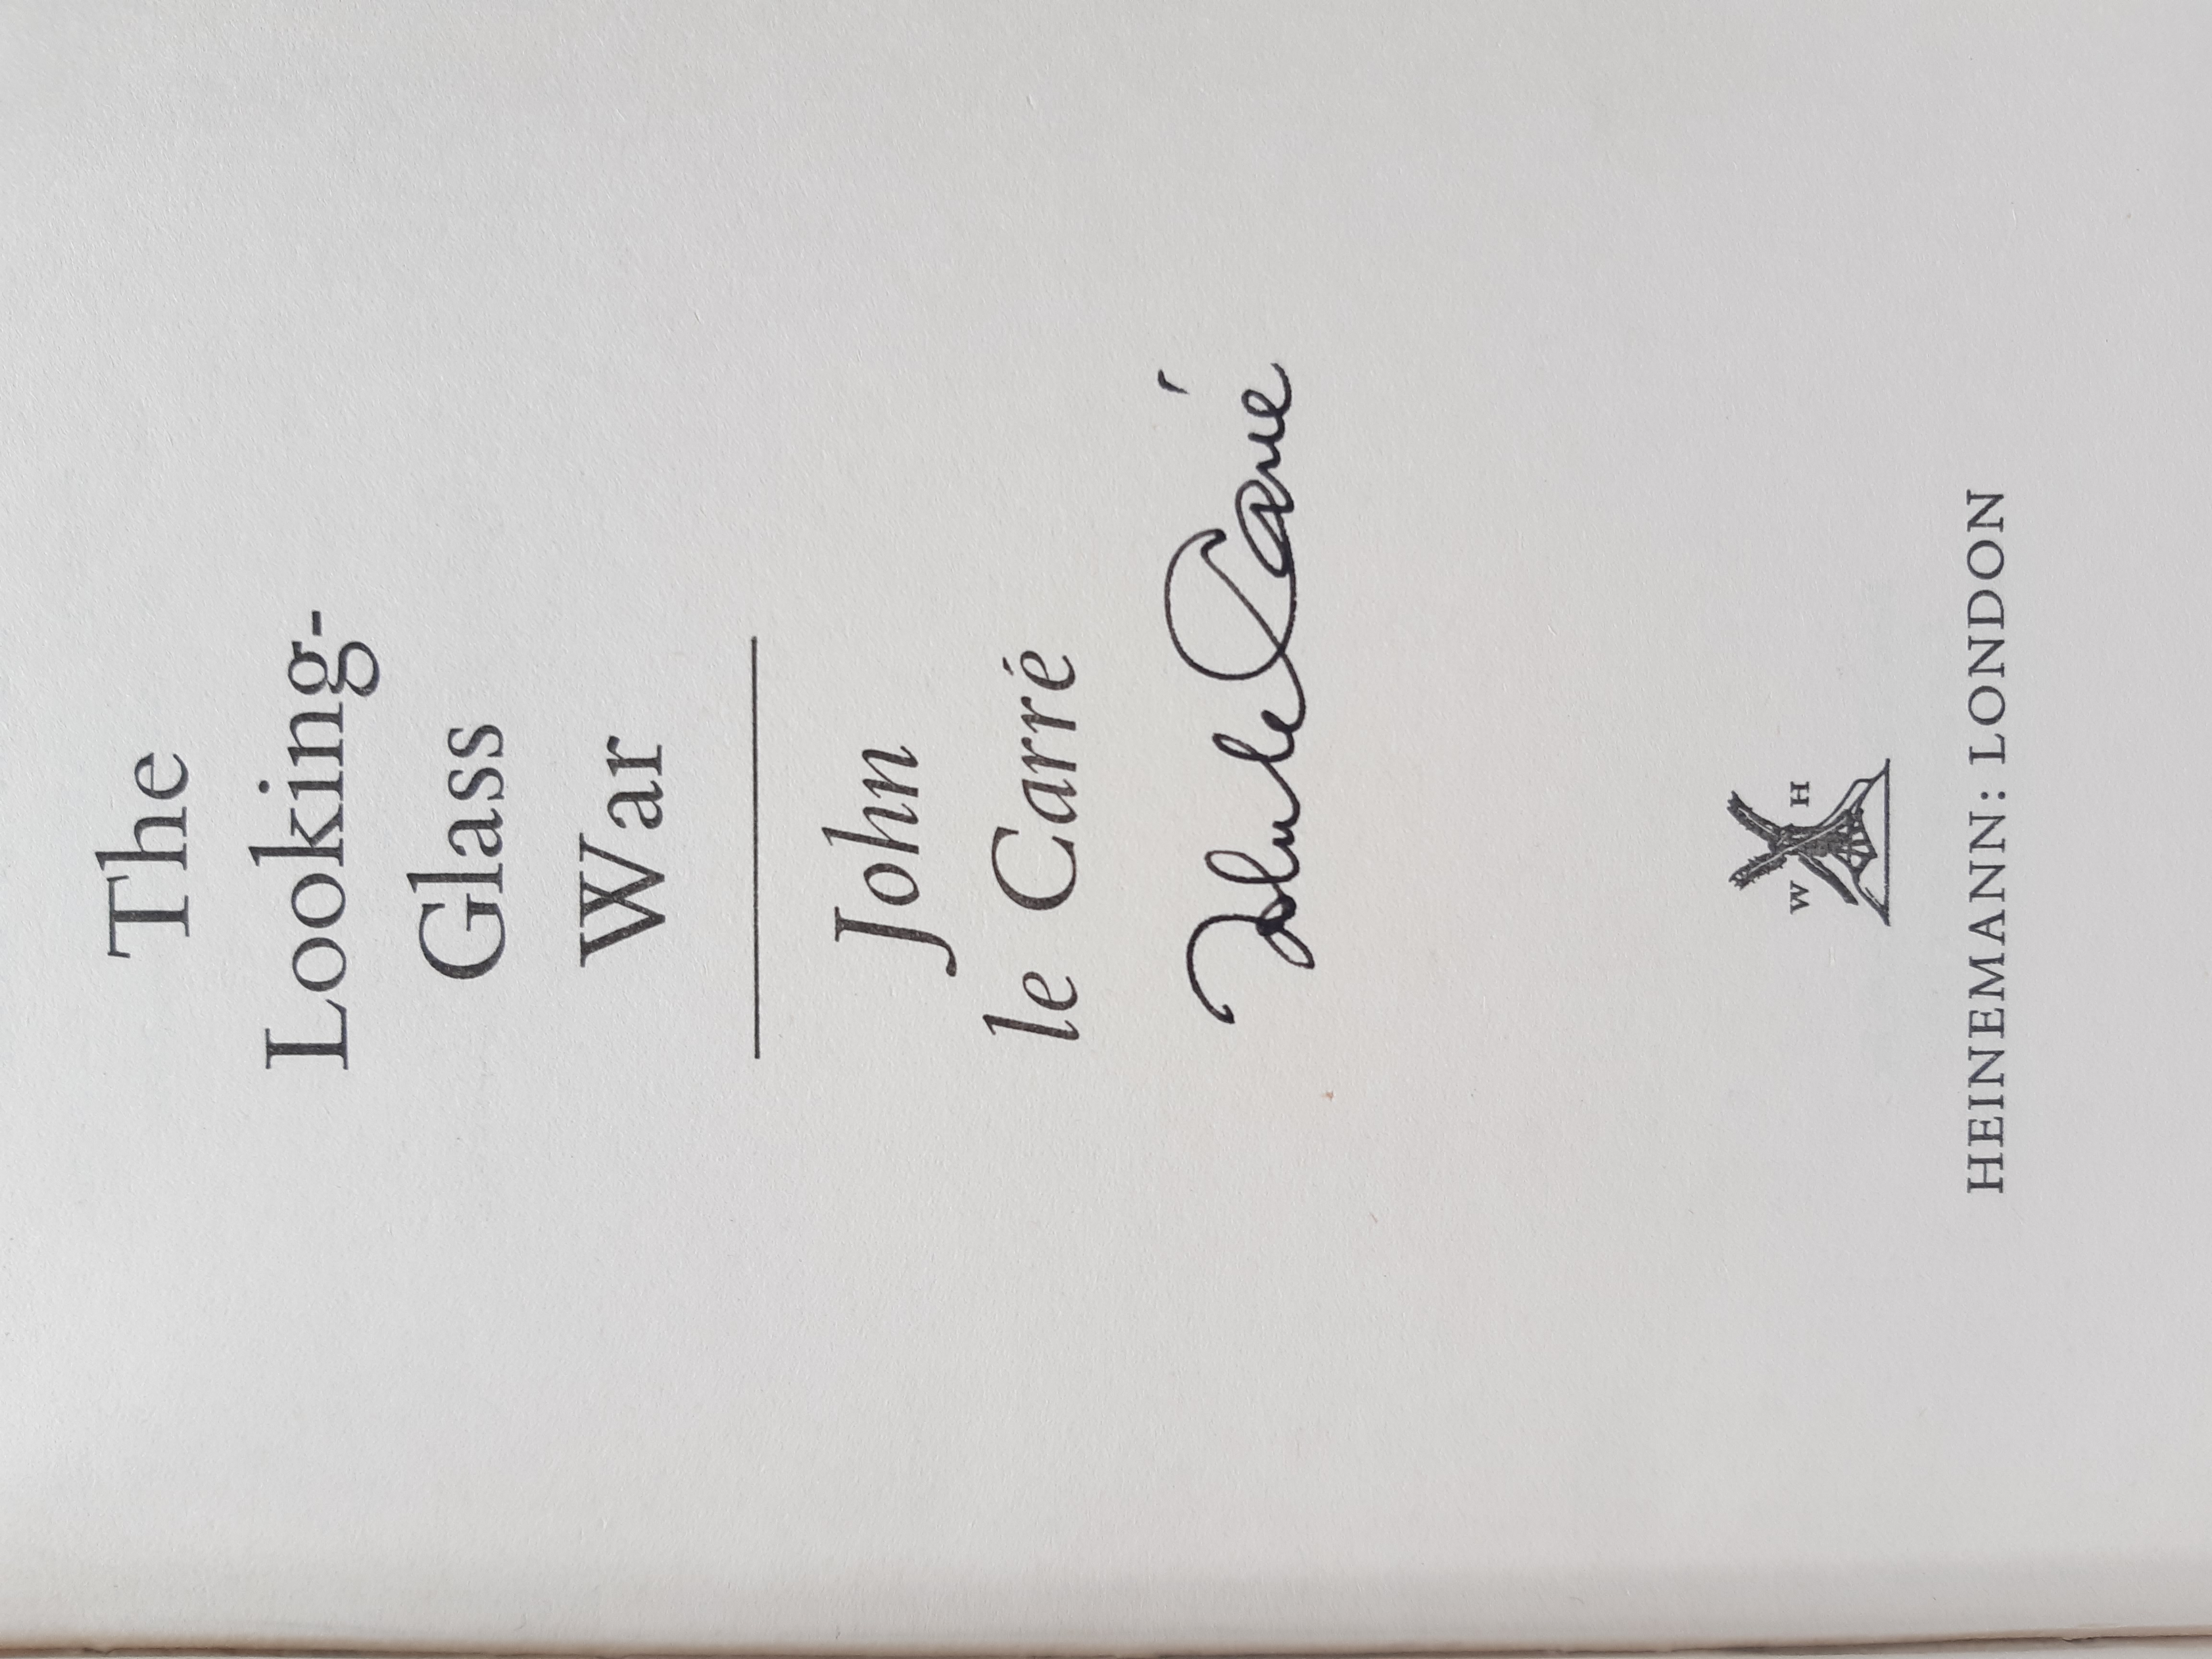 The
Looking-
Glass
War
John
le Carré
John le Carré
W H
HEINEMANN: LONDON